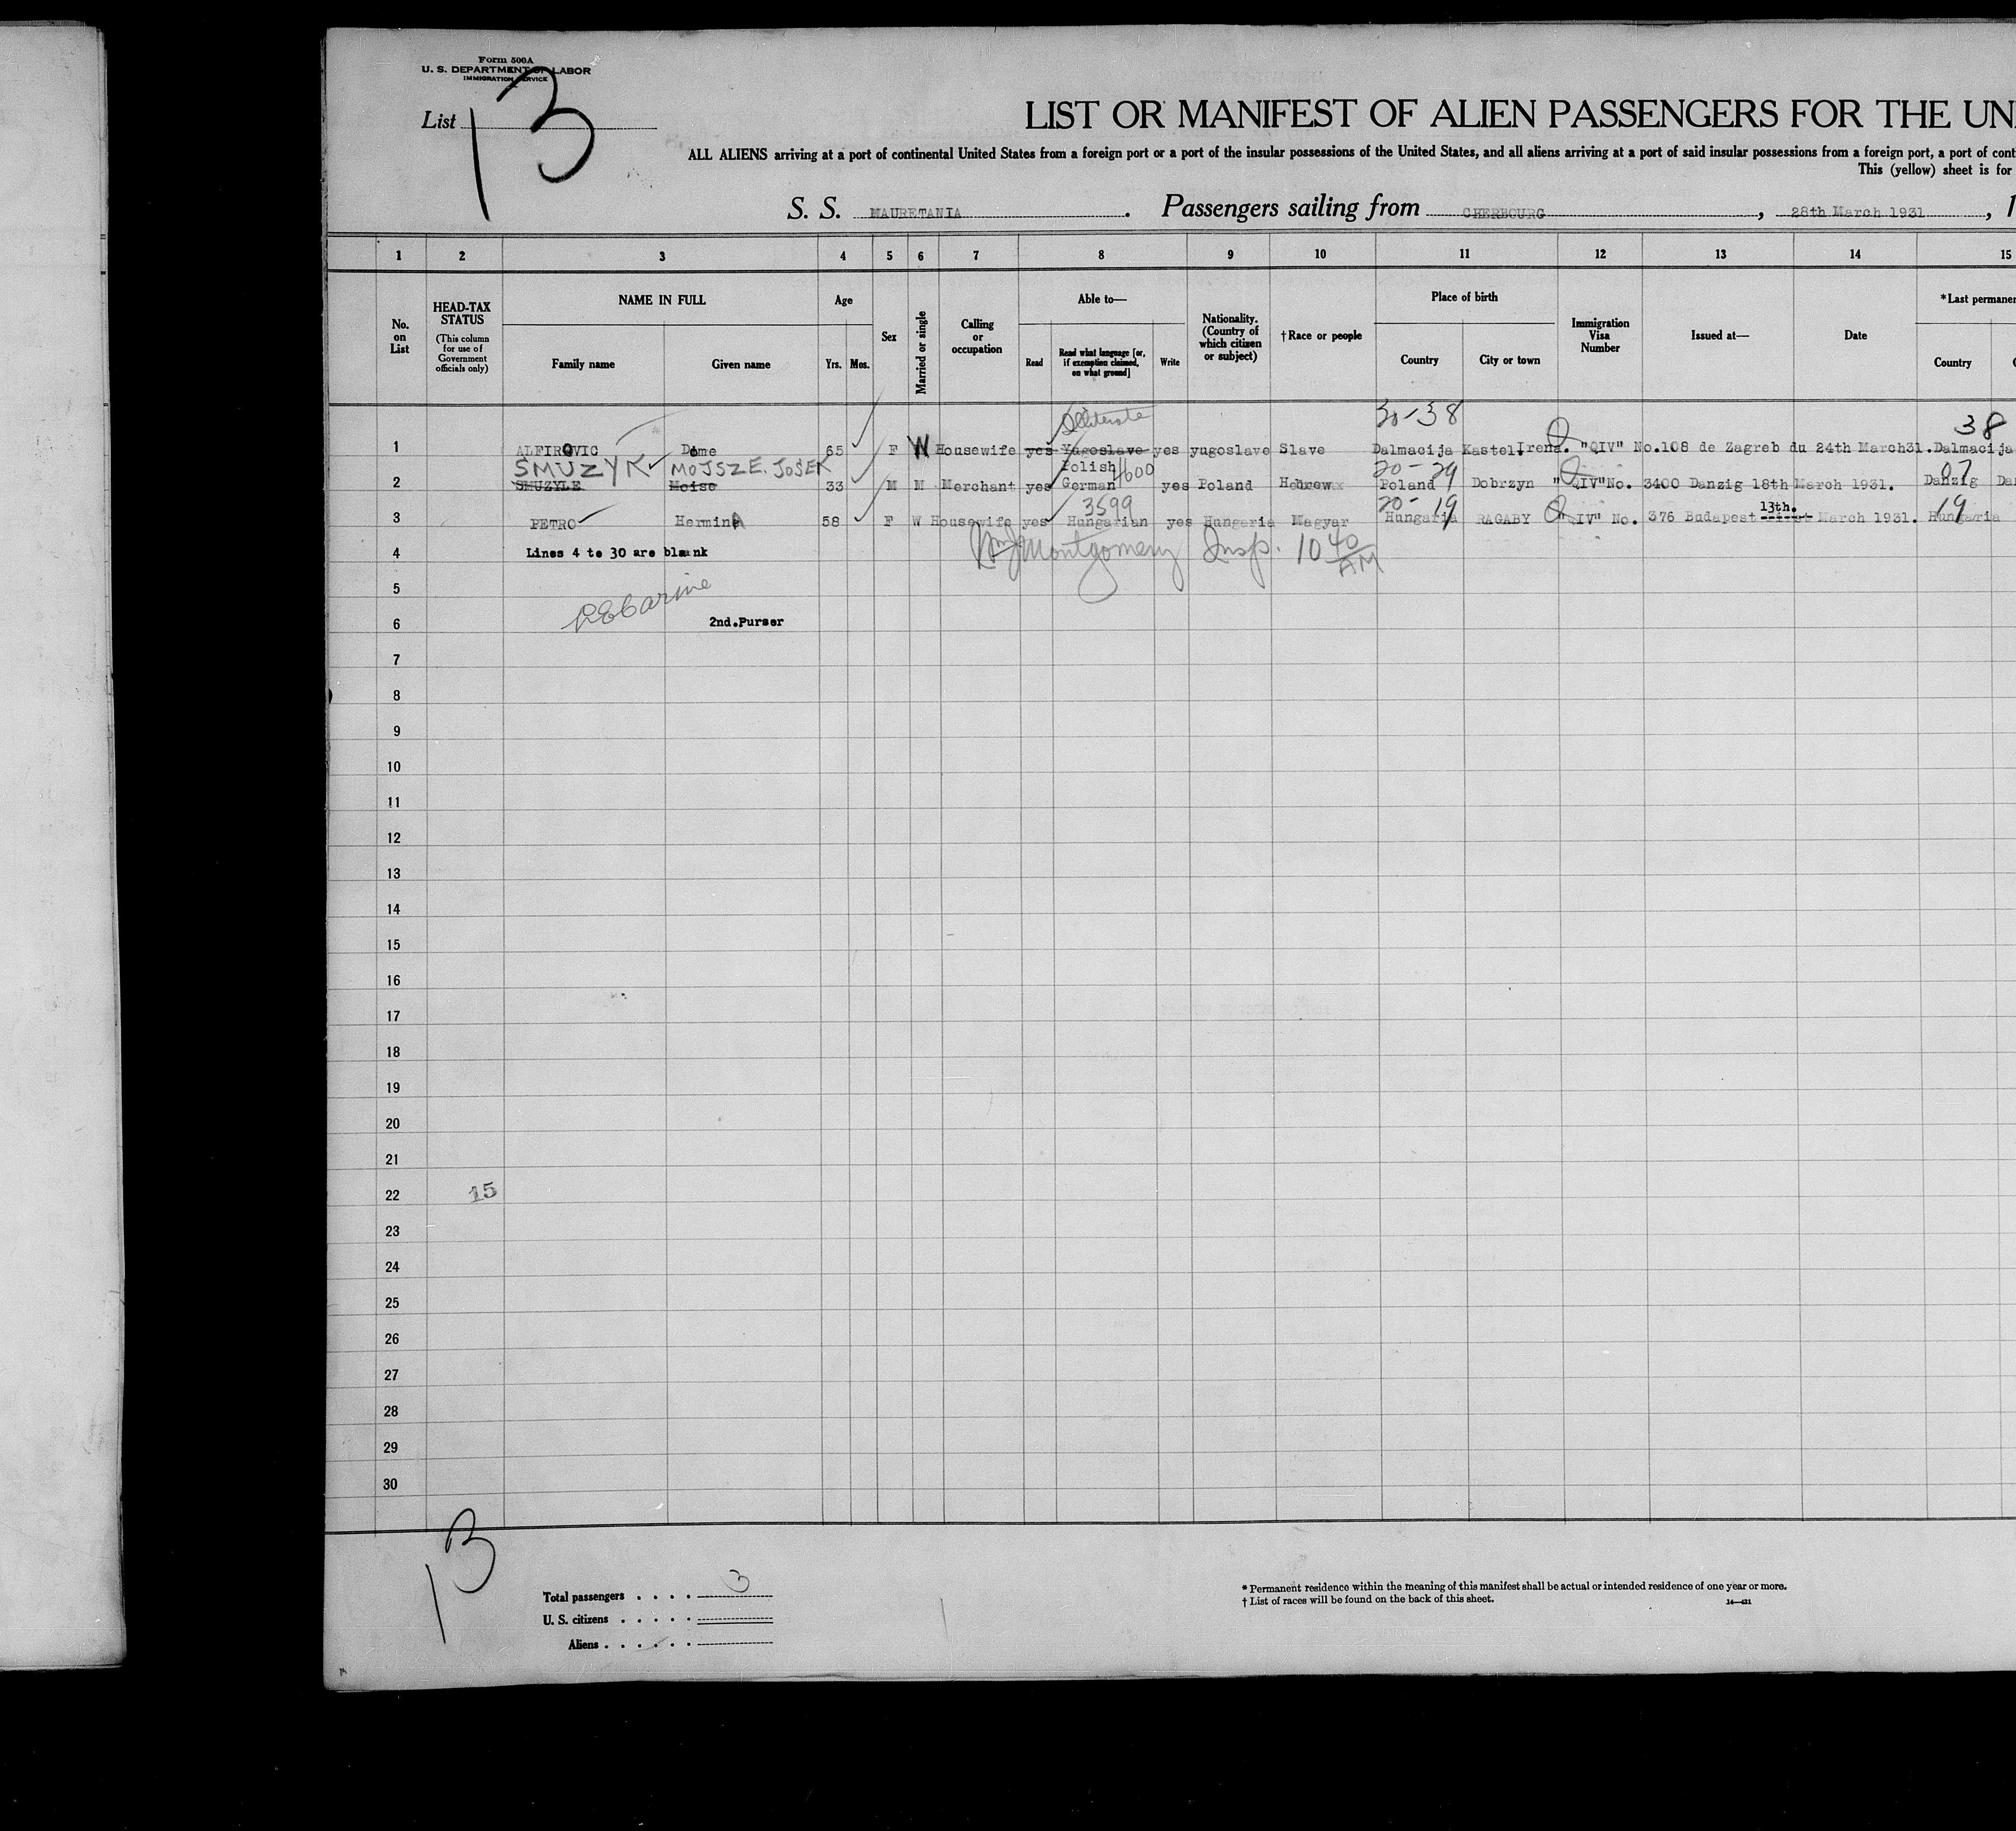 Form 500A
U. S. DEPARTMENT OF LABOR
IMMIGRATION SERVICE
List 13
LIST OR MANIFEST OF ALIEN PASSENGERS FOR THE UN
ALL ALIENS arriving at a port of continental United States from a foreign port or a port of the insular possessions of the United States, and all aliens arriving at a port of said insular possessions from a foreign port, a port of cont
This (yellow) sheet is for
S. S. MAURETANIA. Passengers sailing from CHERBOURG, 28th March 1931, 1
1 2 3 4 5 6 7 8 9 10 11 12 13 14 15
No. on List
HEAD-TAX STATUS
(This column for use of Government officials only)
NAME IN FULL
Family name
Given name
Age
Yrs. Mos.
Sex
Married or single
Calling or occupation
Able to—
Read
Read what language [or, if exemption claimed, on what ground]
Write
Nationality. (Country of which citizen or subject)
†Race or people
Place of birth
Country
City or town
Immigration Visa Number
Issued at—
Date
*Last permanen
Country
Illiterate 30-38 38
1 ALFIROVIC Dome 65 F W Housewife yes Yugoslave yes yugoslave Slave Dalmacija Kastel Irena. "QIV" No.108 de Zagreb du 24th March31. Dalmacija
SMUZYK MOJSZE. JOSEK Polish 4600 20-29 07
2 SMUZYLE Moise 33 M M Merchant yes German yes Poland Hebrew Poland Dobrzyn "QIV" No. 3400 Danzig 18th March 1931. Danzig Da
3599 20-19 13th. 19
3 PETRO HerminA 58 F W Housewife yes Hungarian yes Hungaria Magyar Hungaria RAGABY "QIV" No. 376 Budapest March 1931. Hungaria
4 Lines 4 to 30 are blank
Montgomery Insp. 10 40 AM
5
6 2nd.Purser
7
8
9
10
11
12
13
14
15
16
17
18
19
20
21
22 15
23
24
25
26
27
28
29
30
13
Total passengers . . . . 3
U. S. citizens . . . . .
Aliens . . . . . .
* Permanent residence within the meaning of this manifest shall be actual or intended residence of one year or more.
† List of races will be found on the back of this sheet.
14—431